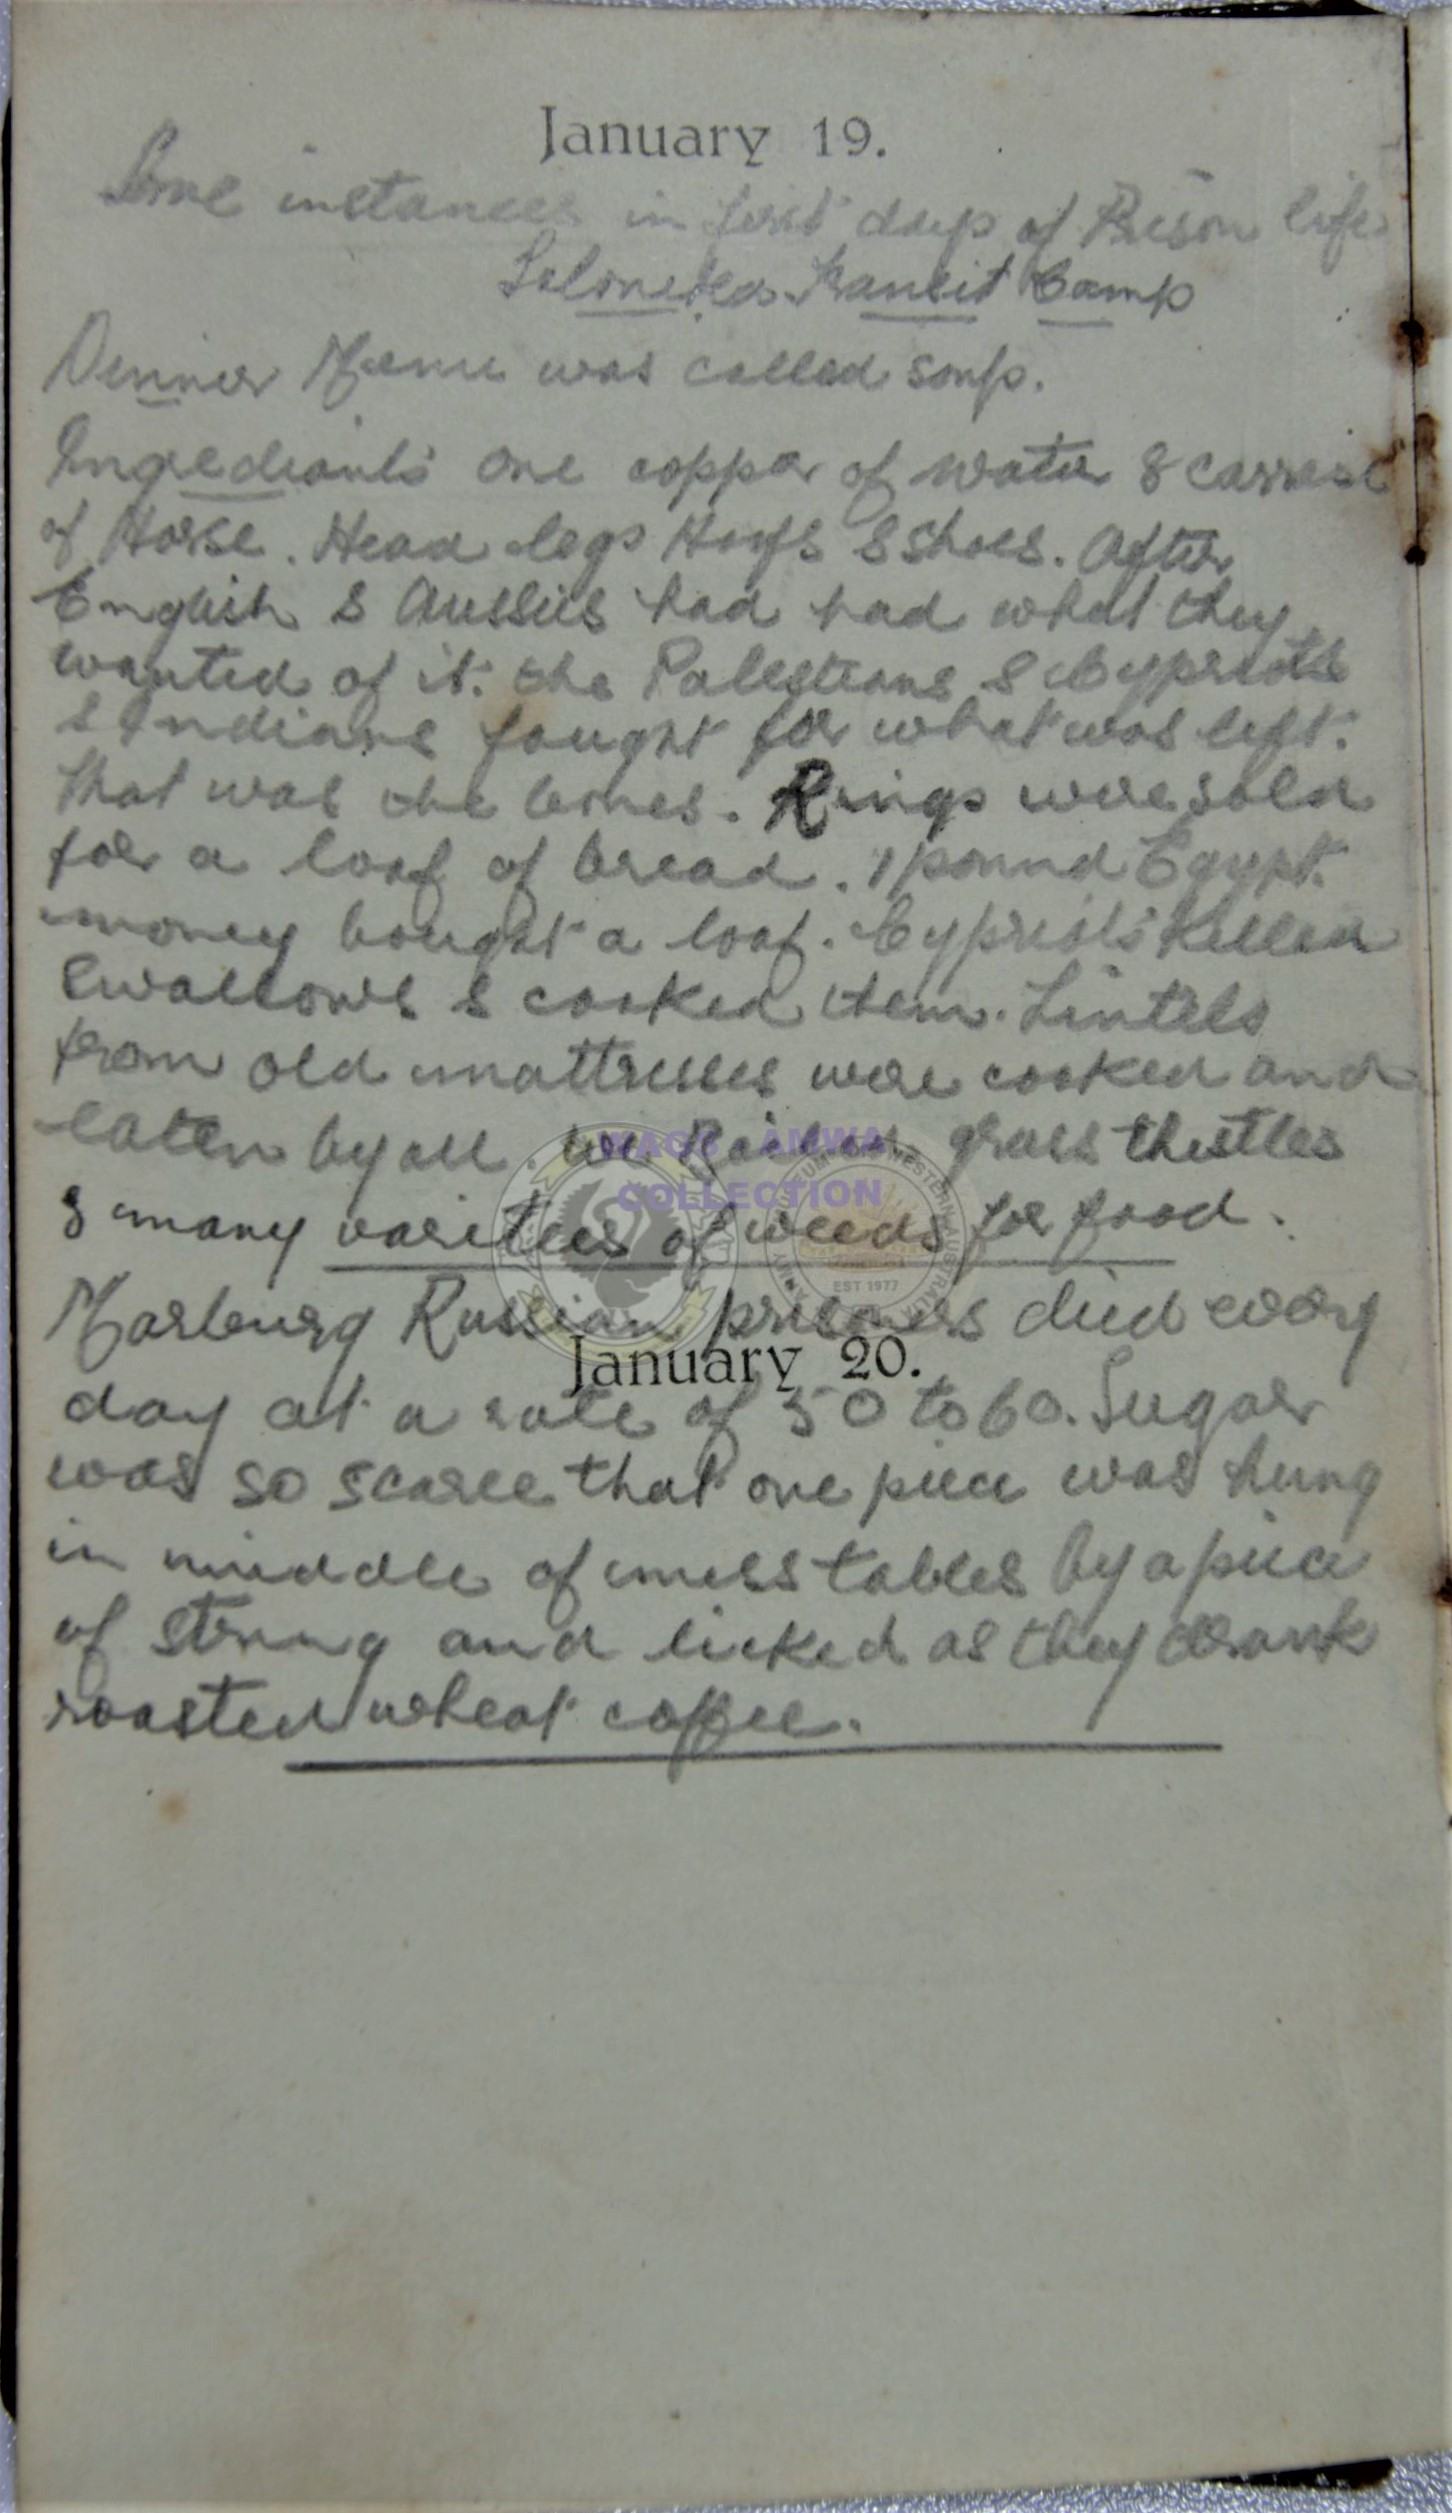 January 19.
Some instances in first days of Prison life
Salonika Transit Camp
Dinner Menu was called soup.
Ingrediants one copper of water & carcase
of Horse. Head legs Hoofs & Shoes. After
English & Aussies had had what they
wanted of it. the Palestians & Cypriots
& Indians fought for what was left.
that was the bones. Rings were sold
for a loaf of bread. 1 pound Egypt.
money bought a loaf. Cypriots Killed
Swallows & cooked them. Lintels
from old mattresses were cooked and
eaten by all. We grass thistles
& many varities of weeds for food.
WAGS AMWA
COLLECTION
EST 1977
Marburg Russian prisoners died every
January 20.
day at a rate of 50 to 60. Sugar
was so scarce that one piece was hung
in middle of mess tables by a piece
of string and licked as they drank
roasted wheat coffee.